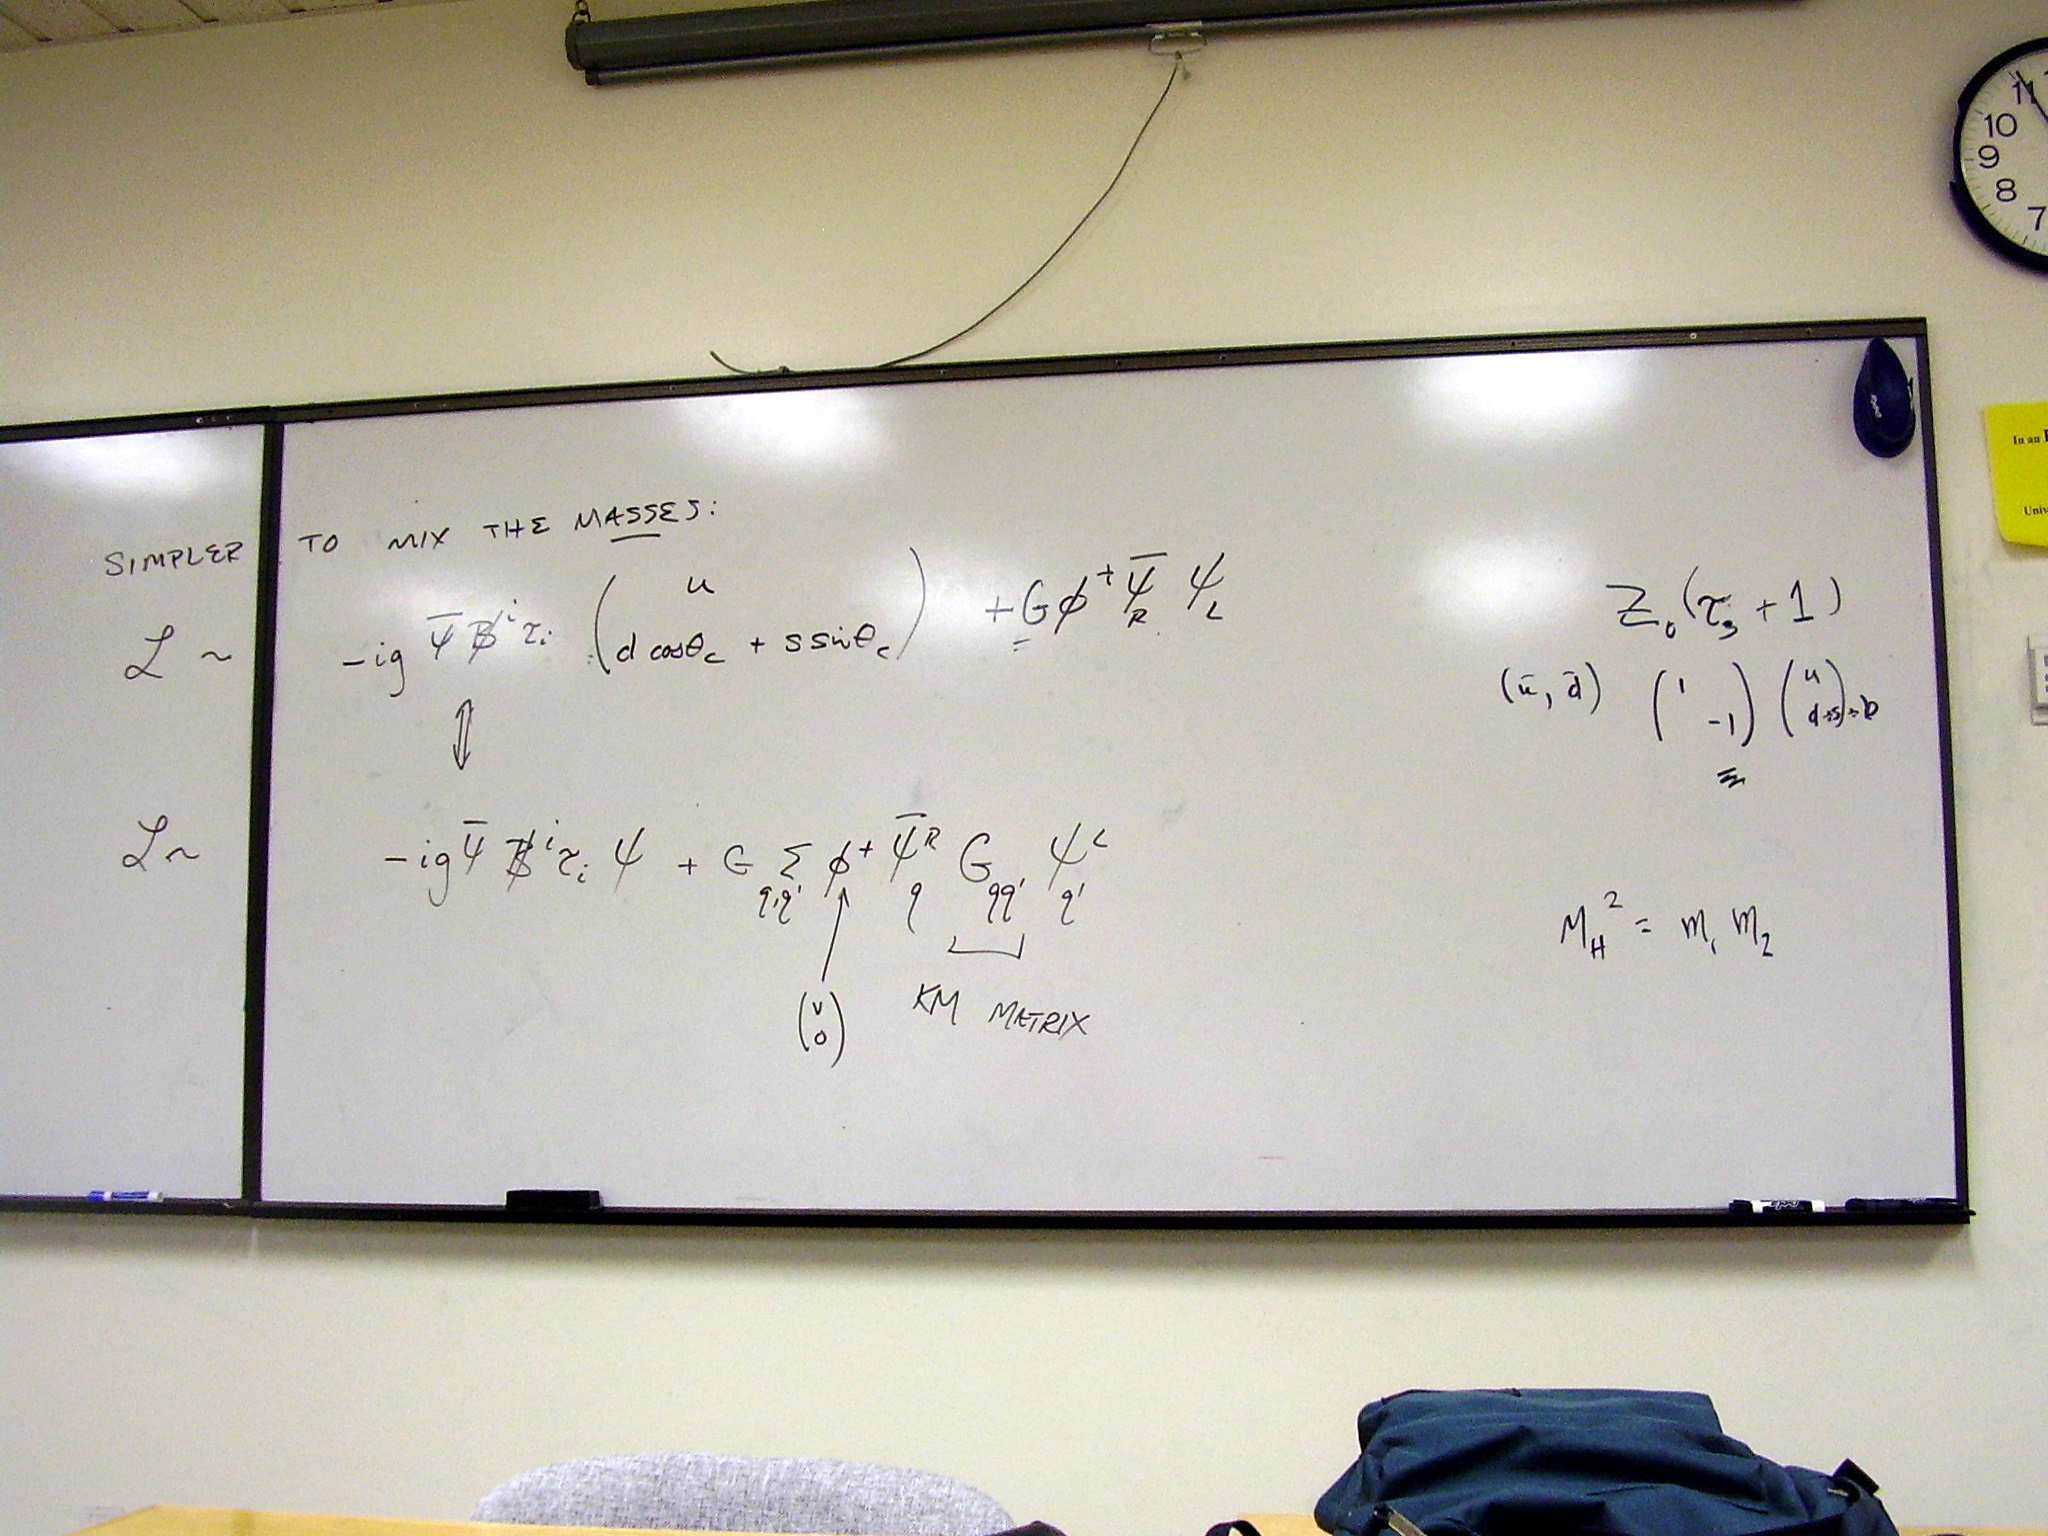 SIMPLER TO MIX THE MASSES:
ℒ ~ -ig Ψ̄ B̸ⁱ τᵢ ( u
d cosθ_c + s sinθ_c ) + G φ⁺ Ψ̄_R Ψ_L
⇕
ℒ ~ -ig Ψ̄ B̸ⁱ τᵢ Ψ + G Σ_{q,q'} φ⁺ Ψ̄_q^R G_{qq'} Ψ_{q'}^L
( v
0 )
KM MATRIX
Z₀ (τ₃ + 1)
(ū, d̄) ( 1
-1 ) ( u
d+s+b )
M_H² = m₁ m₂
11
10
9
8
7
In an
Univ
expo
expo